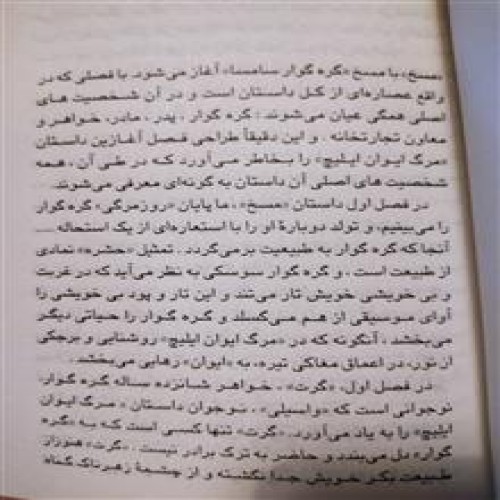 «مسخ» با مسخ «گره گوار سامسا» آغاز می‌شود. با فصلی که در
واقع عصاره‌ای از کل داستان است و در آن شخصیت های
اصلی همگی عیان می‌شوند : گره گوار ، پدر ، مادر، خواهر و
معاون تجارتخانه . و این دقیقاً طراحی فصل آغازین داستان
«مرگ ایوان ایلیچ» را بخاطر می‌آورد که در طی آن ، همه
شخصیت های اصلی آن داستان به گونه‌ای معرفی می‌شوند.
در فصل اول داستان «مسخ» ، ما پایان «روزمرگی» گره گوار
را می‌بینیم، و تولد دوبارهٔ او را با استعاره‌ای از یک استحاله ....
آنجا که گره گوار به طبیعت برمی‌گردد . تمثیل «حشره» نمادی
از طبیعت است ، و گره گوار سوسکی به نظر می‌آید که در غربت
و بی خویشی خویش تار می‌تند و این تار و پود بی خویشی را
آوای موسیقی از هم می‌گسلد و گره گوار را حیاتی دیگر
می‌بخشد ، آنگونه که در «مرگ ایوان ایلیچ» روشنایی و برجکی
از نور، در اعماق مغاکی تیره، به «ایوان» رهایی می‌بخشد.
در فصل اول، «گرت» ، خواهر شانزده ساله گره گوار،
نوجوانی است که «واسیلی» ، نوجوان داستان «مرگ ایوان
ایلیچ» را به یاد می‌آورد. «گرت» تنها کسی است که به «گره
گوار» دل می‌بندد و حاضر به ترک برادر نیست . «گرت» هنوز از
طبیعت بکر خویش جدا نگشته و از چشمهٔ زهرناک گناه